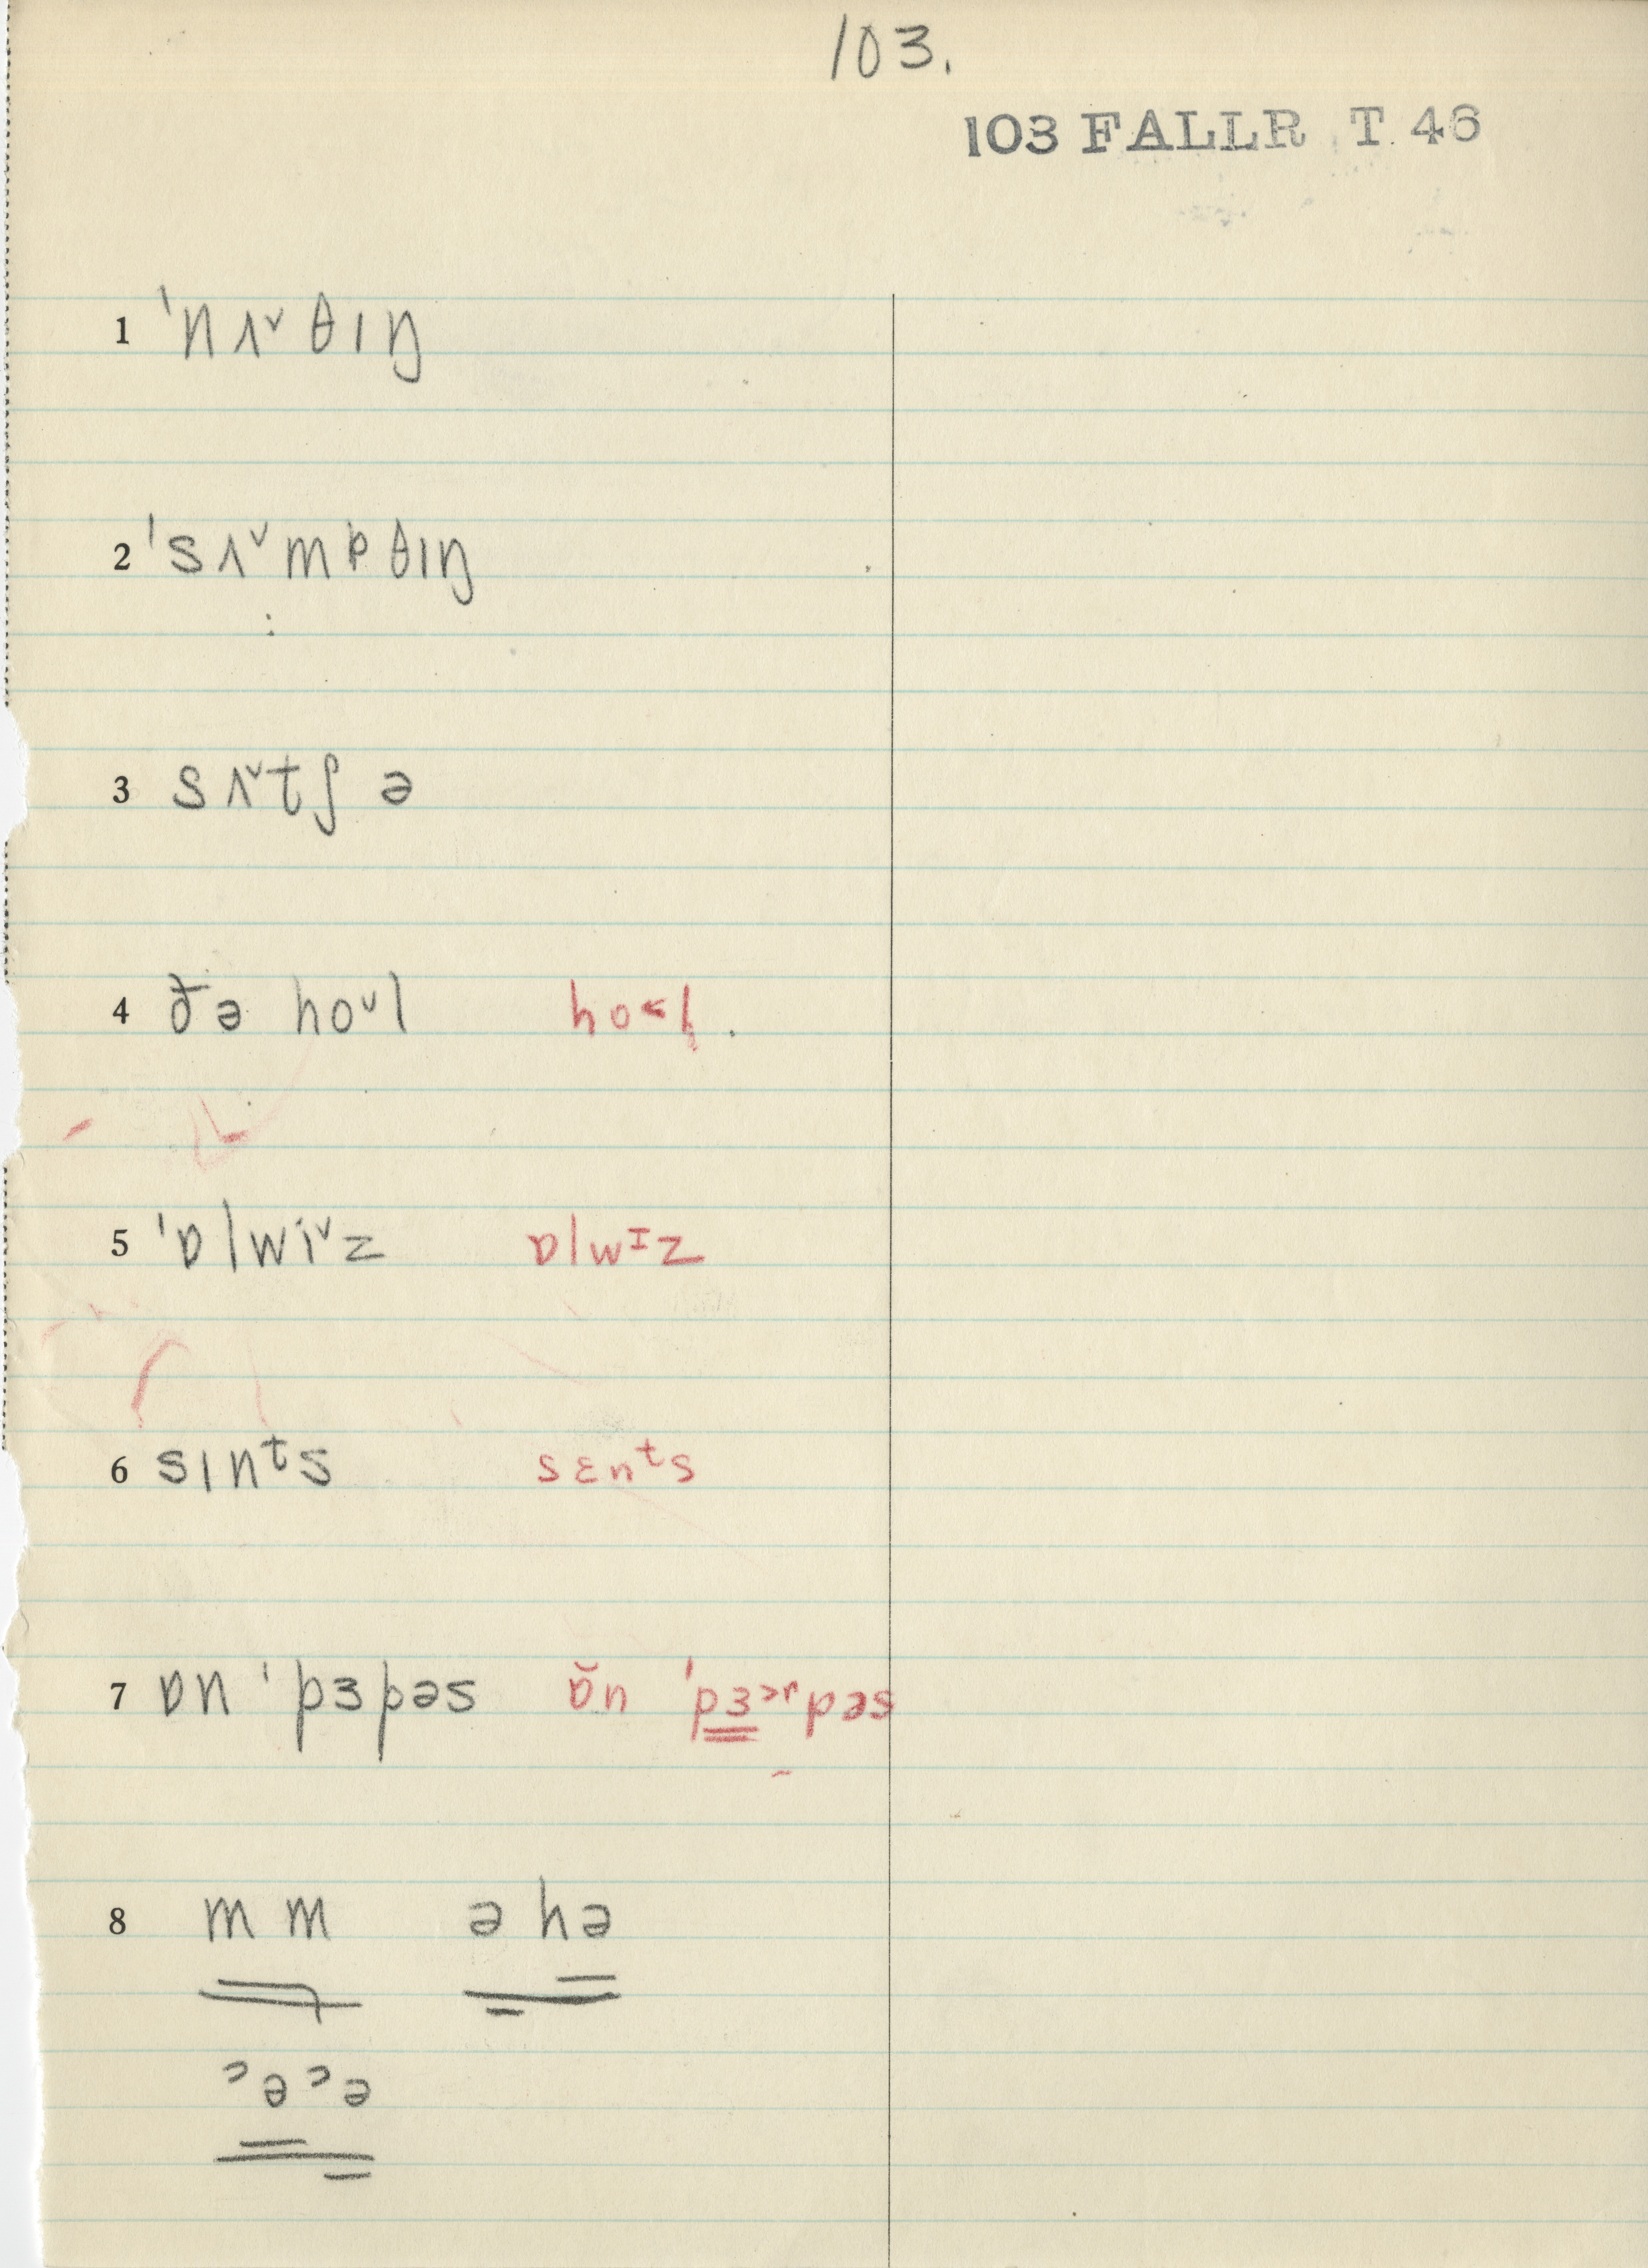 103.
103 FALLR T 46
1 ˈnʌ˅θɪŋ
2 ˈsʌ˅mpθɪŋ
3 sʌ˅tʃ ə
4 ðə ho˅l ho˂l̥.
5 ˈɒlwi˅z ɒlwɪz
6 sɪnᵗs sɛnᵗs
7 ɒn ˈpɜpəs ɒ̆n ˈpɜ˃ʳpəs
8 mm əhə
ʾəʾə